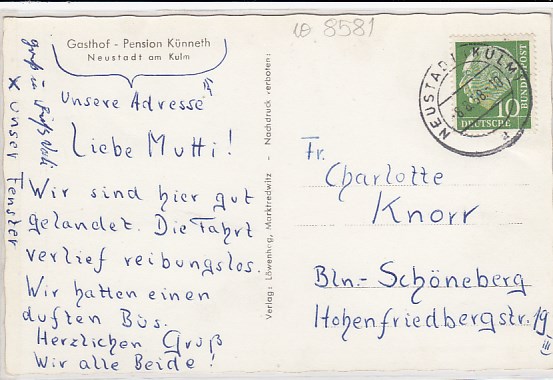 W 8581
Gasthof - Pension Künneth
Neustadt am Kulm
Unsere Adresse
Liebe Mutti!
Wir sind hier gut
gelandet. Die Fahrt
verlief reibungslos.
Wir hatten einen
duften Bus.
Herzlichen Gruß
Wir alle Beide!
x unser Fenster
Verlag: Löwenhag, Marktredwitz - Nachdruck verboten:
NEUSTADT KULM
10
DEUTSCHE
BUNDESPOST
Fr.
Charlotte
Knorr
Bln.- Schöneberg
Hohenfriedbergstr. 19
III